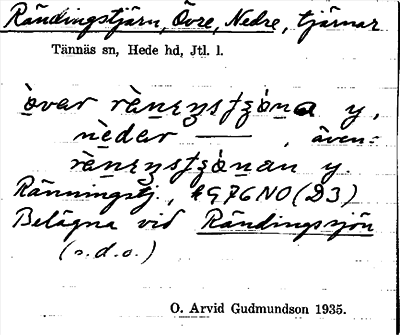 Rändingstjärn, Övre, Nedre, tjärnar
Tännäs sn, Hede hd, Jtl. l.
òvar y,
nèdar ——— , även:
y.
Ränningstj., *G76NO (D3)
Belägna vid Rändingssjön
(s.d.o.)
O. Arvid Gudmundson 1935.